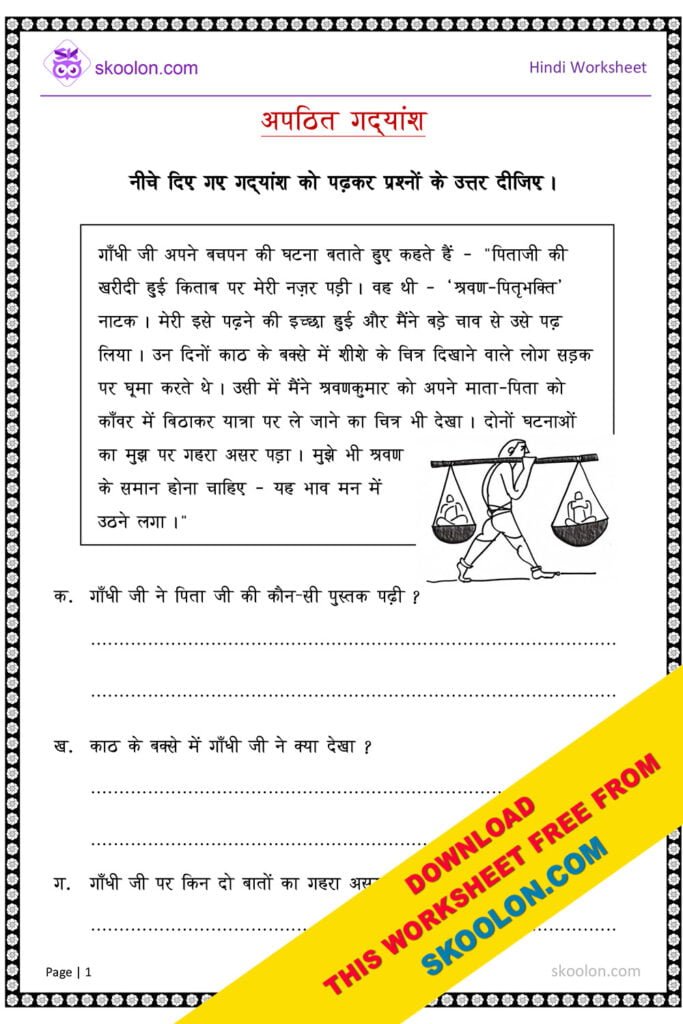 skoolon.com
Hindi Worksheet
अपठित गद्यांश
नीचे दिए गए गद्यांश को पढ़कर प्रश्नों के उत्तर दीजिए ।
गाँधी जी अपने बचपन की घटना बताते हुए कहते हैं - "पिताजी की
खरीदी हुई किताब पर मेरी नज़र पड़ी । वह थी - ‘श्रवण-पितृभक्ति’
नाटक । मेरी इसे पढ़ने की इच्छा हुई और मैंने बड़े चाव से उसे पढ़
लिया । उन दिनों काठ के बक्से में शीशे के चित्र दिखाने वाले लोग सड़क
पर घूमा करते थे । उसी में मैंने श्रवणकुमार को अपने माता-पिता को
काँवर में बिठाकर यात्रा पर ले जाने का चित्र भी देखा । दोनों घटनाओं
का मुझ पर गहरा असर पड़ा । मुझे भी श्रवण
के समान होना चाहिए - यह भाव मन में
उठने लगा ।"
क. गाँधी जी ने पिता जी की कौन-सी पुस्तक पढ़ी ?
ख. काठ के बक्से में गाँधी जी ने क्या देखा ?
ग. गाँधी जी पर किन दो बातों का गहरा
DOWNLOAD
THIS WORKSHEET FREE FROM
SKOOLON.COM
Page | 1
skoolon.com